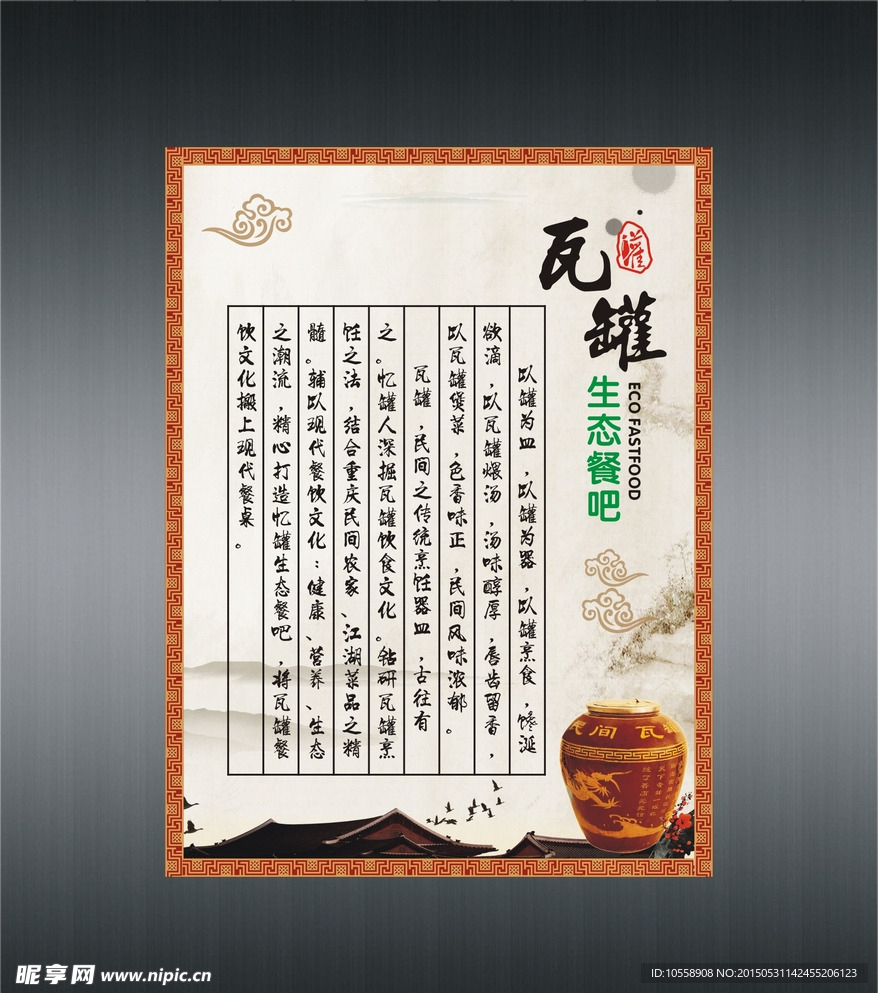 瓦罐
罐
生态餐吧
ECO FASTFOOD
以罐为皿,以罐为器,以罐烹食,馋涎
欲滴,以瓦罐煨汤,汤味醇厚,唇齿留香,
以瓦罐煲菜,色香味正,民间风味浓郁。
瓦罐,民间之传统烹饪器皿,古往有
之。忆罐人深掘瓦罐饮食文化。钻研瓦罐烹
饪之法,结合重庆民间农家、江湖菜品之精
髓。辅以现代餐饮文化:健康、营养、生态
之潮流,精心打造忆罐生态餐吧,将瓦罐餐
饮文化搬上现代餐桌。
民间瓦
昵享网 www.nipic.cn
ID:10558908 NO:20150531142455206123